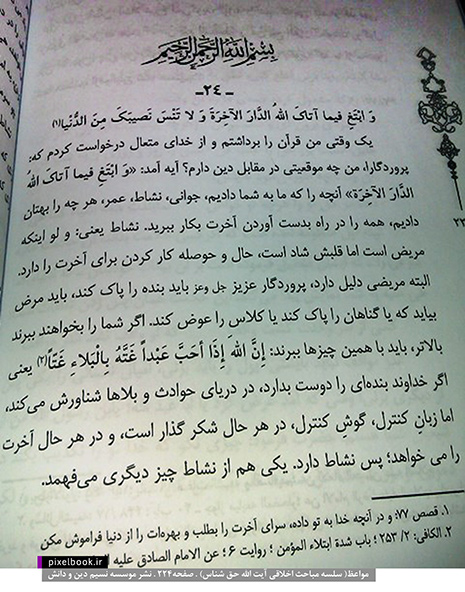 بسم الله الرحمن الرحیم
ـ ۲۴ـ
وَ ابْتَغِ فیما آتاکَ اللهُ الدَّارَ الآخِرَةَ وَ لا تَنْسَ نَصیبَکَ مِنَ الدُّنْیا(۱)
یک وقتی من قرآن را برداشتم و از خدای متعال درخواست کردم که:
پروردگارا، من چه موقعیتی در مقابل دین دارم؟ آیه آمد: «وَ ابْتَغِ فیما آتاکَ اللهُ
الدَّارَ الآخِرَةَ» آنچه را که ما به شما دادیم، جوانی، نشاط، عمر، هر چه را بهتان
دادیم، همه را در راه بدست آوردن آخرت بکار ببرید. نشاط یعنی: و لو اینکه
مریض است اما قلبش شاد است، حال و حوصله کار کردن برای آخرت را دارد.
البته مریضی دلیل دارد، پروردگار عزیز جل وعز باید بنده را پاک کند، باید مرض
بیاید که یا گناهان را پاک کند یا کلاس را عوض کند. اگر شما را بخواهند ببرند
بالاتر، باید با همین چیزها ببرند: إِنَّ اللهَ إِذَا أَحَبَّ عَبْداً غَتَّهُ بِالْبَلاءِ غَتّاً(۲) یعنی
اگر خداوند بنده‌ای را دوست بدارد، در دریای حوادث و بلاها شناورش می‌کند،
اما زبانِ کنترل، گوشِ کنترل، در هر حال شکر گذار است، و در هر حال آخرت
را می خواهد؛ پس نشاط دارد. یکی هم از نشاط چیز دیگری می‌فهمد.
۱. قصص ۷۷: و در آنچه خدا به تو داده، سرای آخرت را بطلب و بهره‌ات را از دنیا فراموش مکن
۲. الکافی: ۲/ ۲۵۳ ؛ باب شدة ابتلاء المؤمن ؛ روایت ۶؛ عن الامام الصادق علیه
pixelbook.ir
مواعظ( سلسه مباحث اخلاقی آیت الله حق شناس) . صفحه۲۲۴ . نشر موسسه نسیم دین و دانش